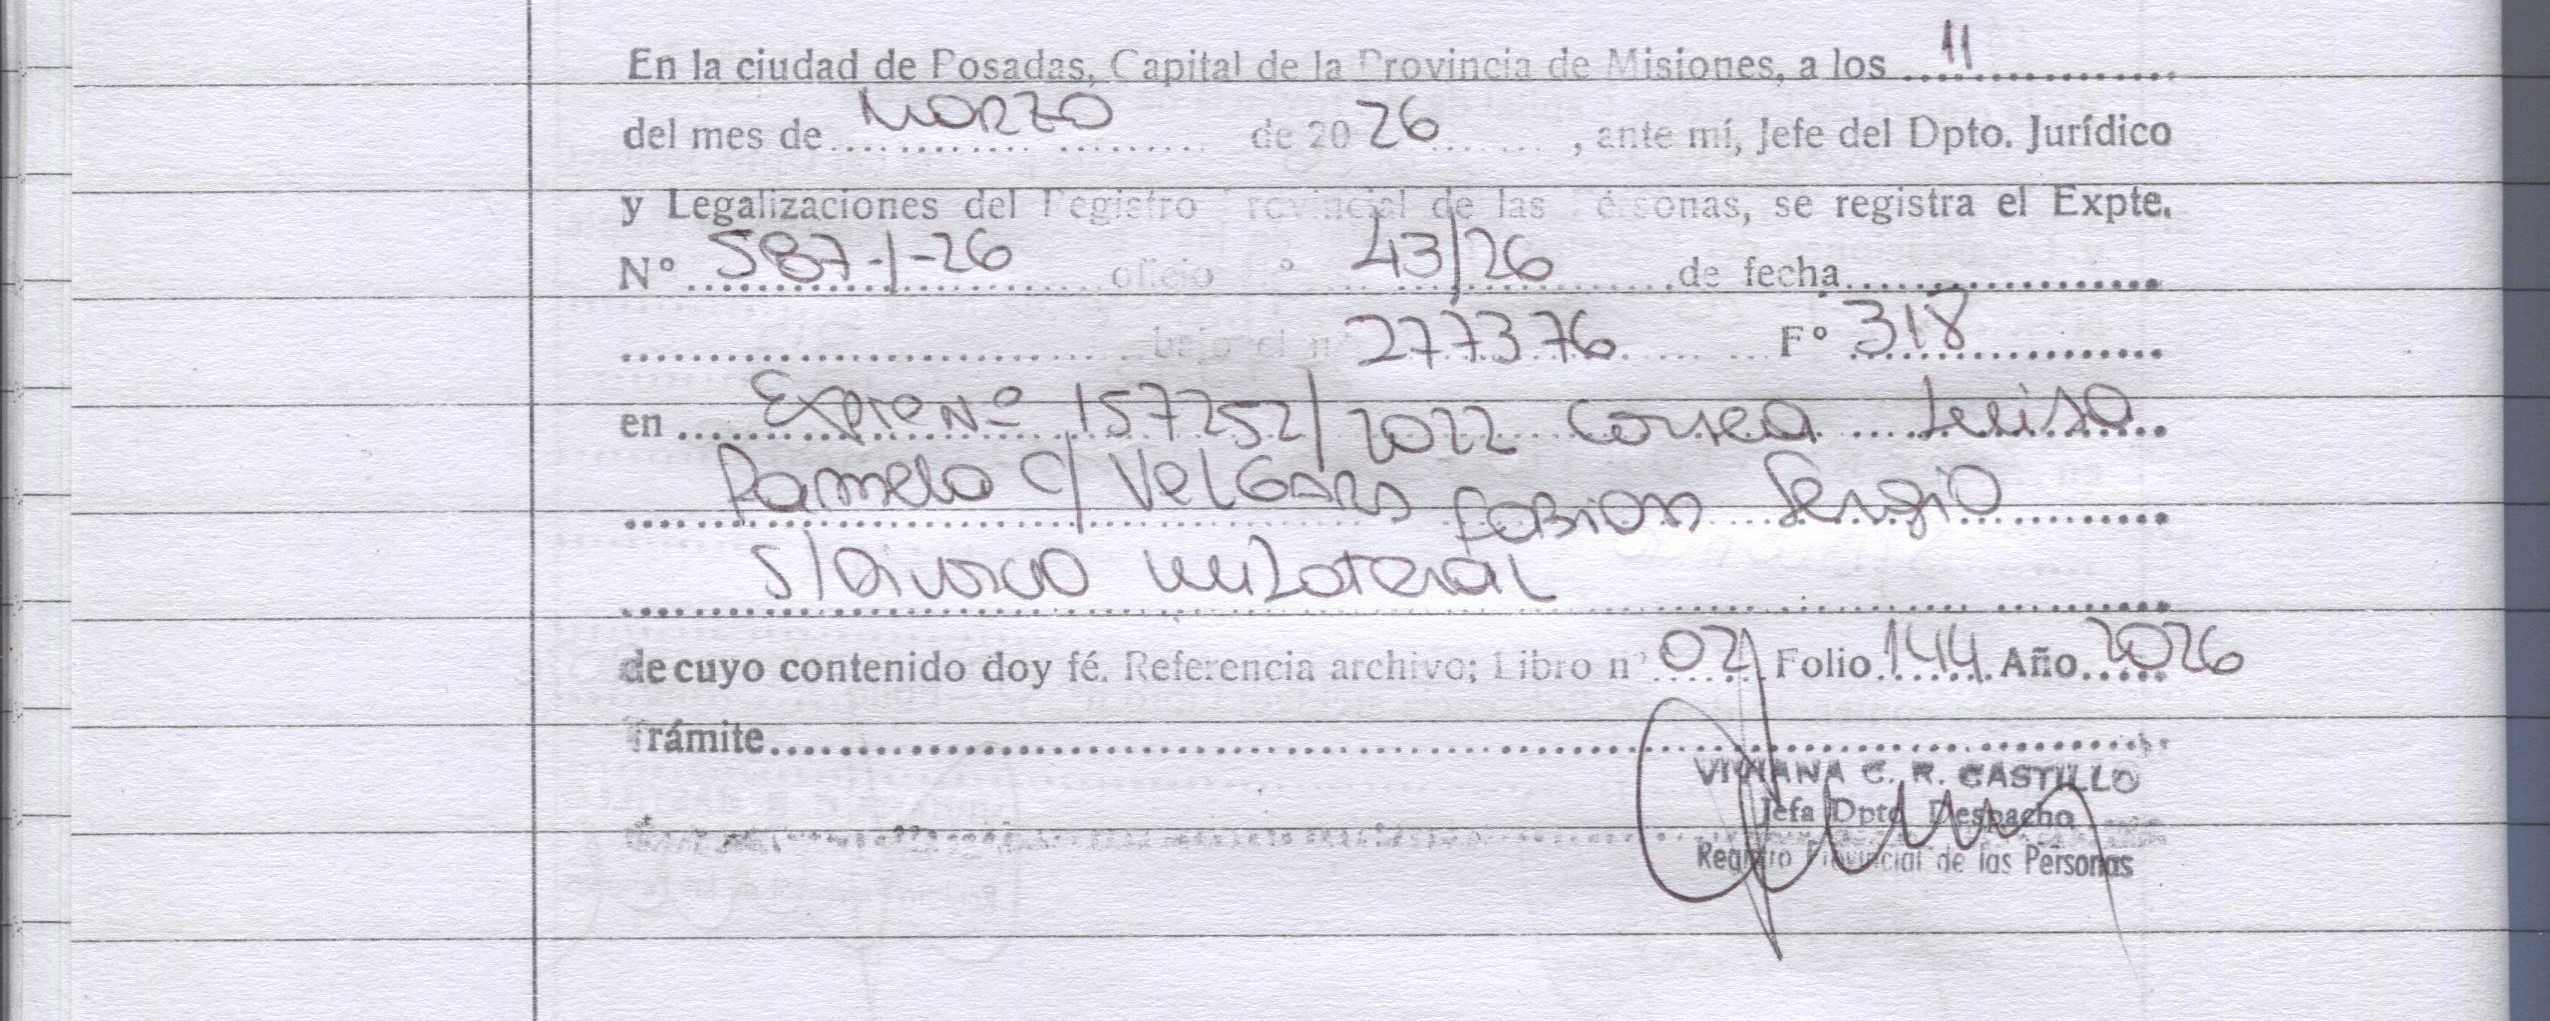 En la ciudad de Posadas, Capital de la Provincia de Misiones, a los 11
del mes de Marzo de 2026, ante mí, Jefe del Dpto. Jurídico
y Legalizaciones del Registro Provincial de las Personas, se registra el Expte.
Nº 587-1-26 oficio nº 43/26 de fecha
bajo el nº 277376 Fº 318
en Expte Nº 157252/2022 Correa Luisa
Pamela C/ Velgara Fabian Sergio
S/ Divorcio unilateral
de cuyo contenido doy fé. Referencia archivo; Libro nº 02 Folio 144 Año 2026
Trámite
VIVIANA C. R. CASTILLO
Jefa Dpto Despacho
Registro Provincial de las Personas